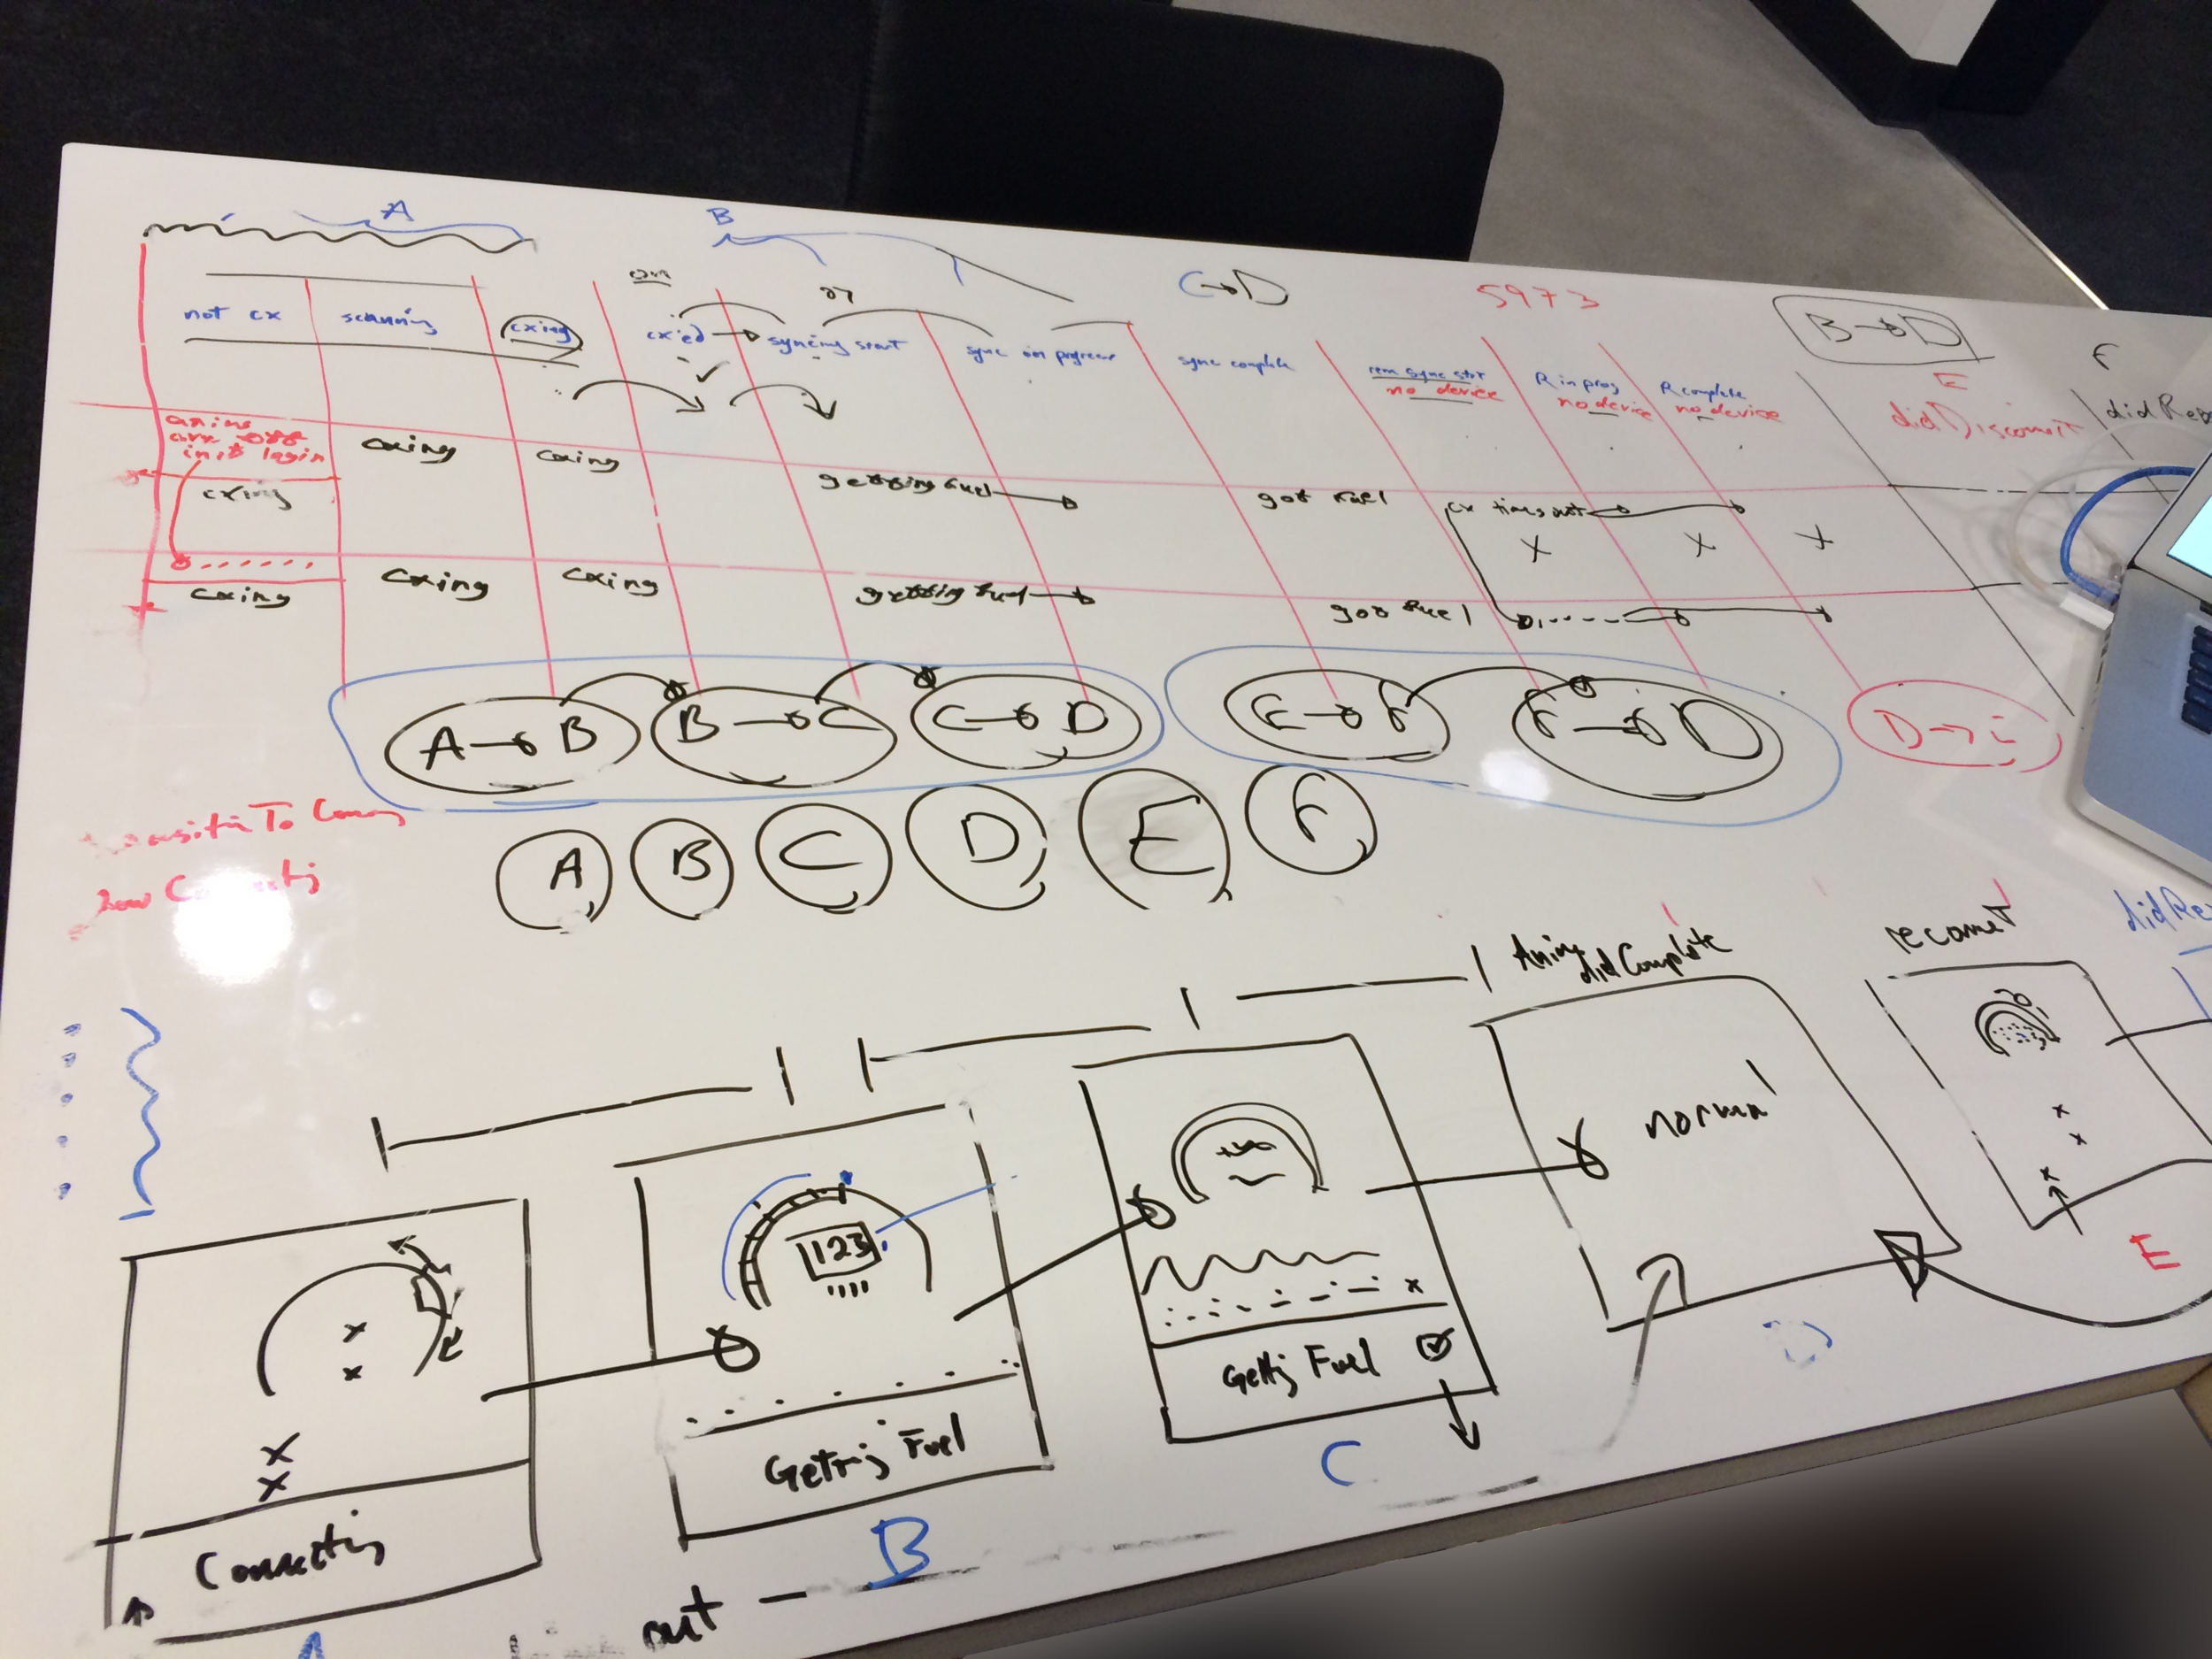 A
B
on
or
C→D
5973
B→D
F
not cx
scanning
cxing
cx'ed → syncing start
sync in progress
sync complete
rem sync start
no device
R in prog
no device
R complete
no device
E
didDisconnect
anims
are off
init login
cxing
cxing
cxing
getting fuel
got fuel
cx times out
x
x
x
cxing
cxing
cxing
getting fuel
got fuel
A→B
B→C
C→D
E→F
F→D
A
B
C
D
E
F
Anim
didComplete
reconnect
normal
123
x
x
x
x
Connecting
Getting Fuel
Getting Fuel
x
x
x
x
A
B
C
D
E
out